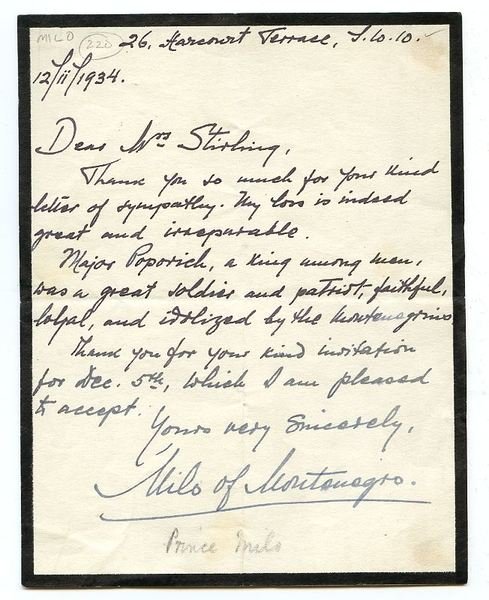 MILO
220
26, Harcourt Terrace, S.W.10.
12/11/1934.
Dear Mrs Stirling,
Thank you so much for your kind
letter of sympathy. My loss is indeed
great and irreparable.
Major Popovich, a king among men,
was a great soldier and patriot, faithful,
loyal, and idolized by the Montenegrins.
Thank you for your kind invitation
for Dec. 5th, which I am pleased
to accept.
Yours very Sincerely,
Milo of Montenegro.
Prince Milo